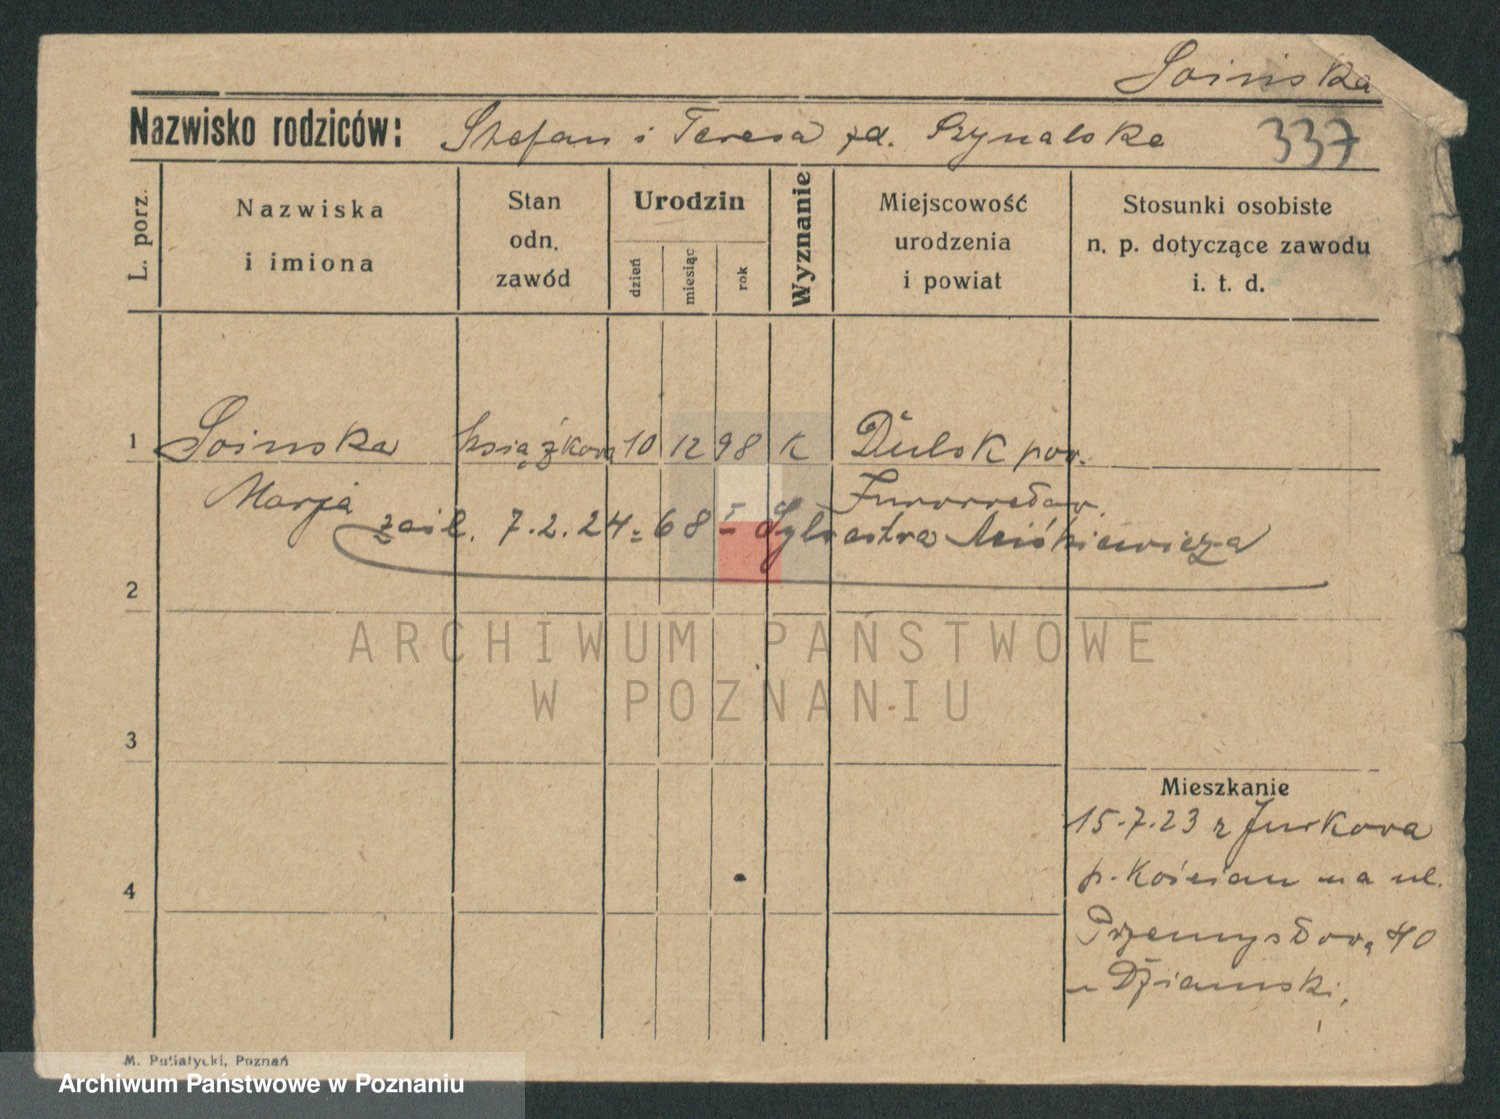 Soinska
Nazwisko rodziców: Stefan i Teresa zd. Szynalska 337
L. porz.
Nazwiska
i imiona
Stan
odn.
zawód
Urodzin
dzień
miesiąc
rok
Wyznanie
Miejscowość
urodzenia
i powiat
Stosunki osobiste
n. p. dotyczące zawodu
i. t. d.
1 Soinska książkowa 10 12 98 k Dulsk pow.
Marja
zaśl. 7.2.24 = 68 I Sylvestra
2
3
4
ARCHIWUM PAŃSTWOWE
W POZNANIU
Mieszkanie
15.7.23 z Jurkowa
p. Kościan na ul.
Przemysłową 40
u Dziamski,
M. Putiatycki, Poznań
Archiwum Państwowe w Poznaniu